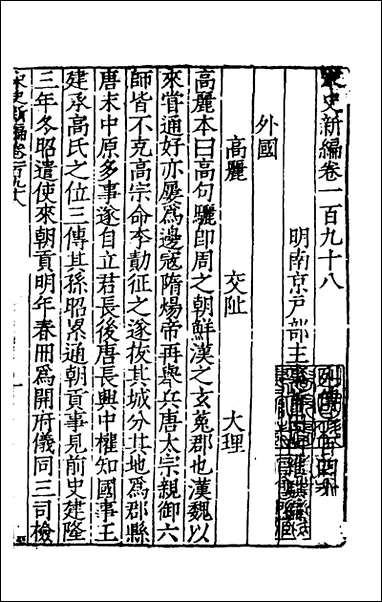 宋史新編卷一百九十八
明南京戶部主
外國
高麗 交阯 大理
高麗本曰高句驪即周之朝鮮漢之玄菟郡也漢魏以
來嘗通好亦屢爲邊寇隋煬帝再舉兵唐太宗親御六
師皆不克高宗命李勣征之遂夜其城分其地爲郡縣
唐末中原多事遂自立君長後唐長興中權知國事王
建承高氏之位三傳其孫昭累通朝貢事見前史建隆
三年冬昭遣使來朝貢明年春冊爲開府儀同三司檢
宋史新編卷一百九十八